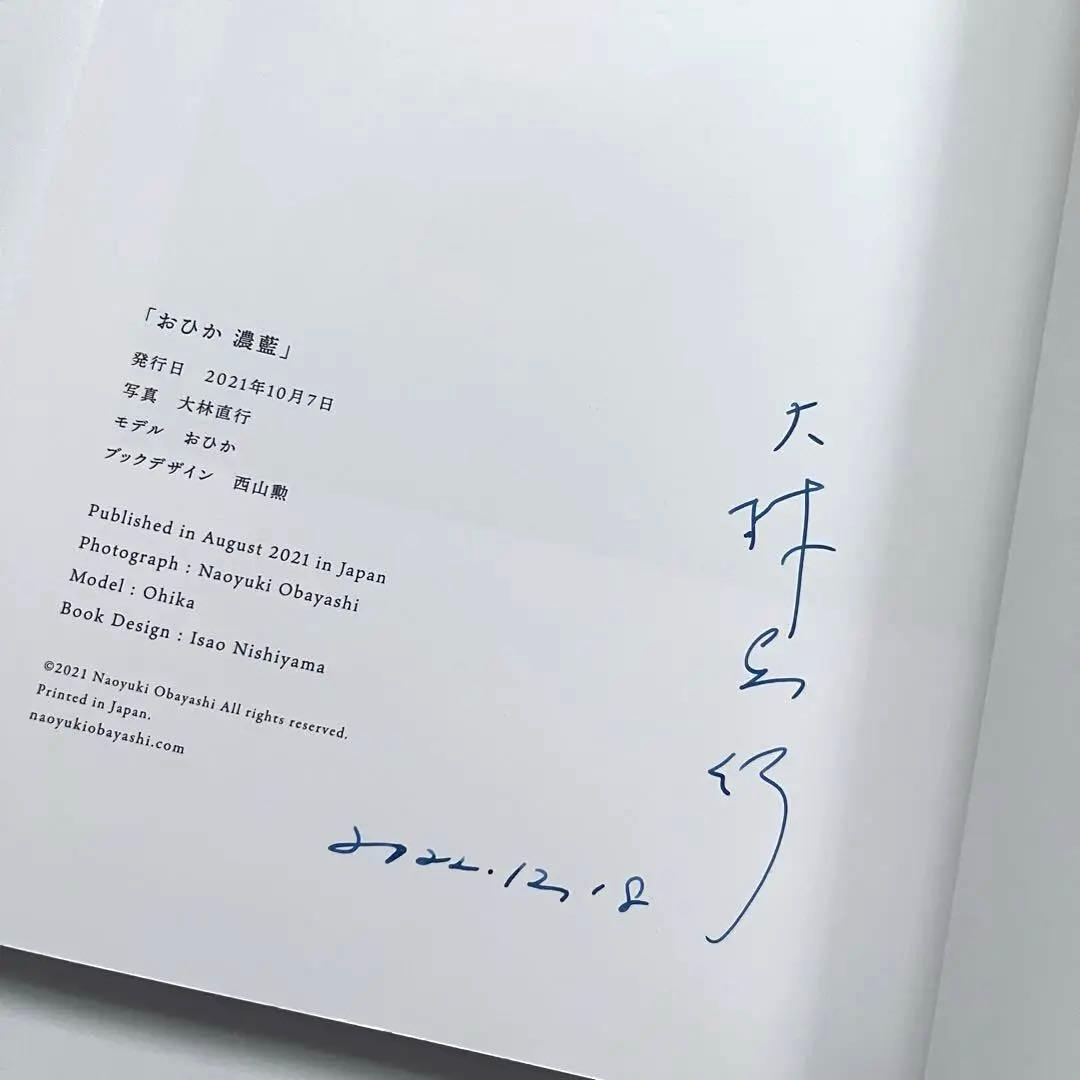 「おひか 濃藍」
発行日 2021年10月7日
写真 大林直行
モデル おひか
ブックデザイン 西山勲
Published in August 2021 in Japan
Photograph : Naoyuki Obayashi
Model : Ohika
Book Design : Isao Nishiyama
©2021 Naoyuki Obayashi All rights reserved.
Printed in Japan.
naoyukiobayashi.com
大林直行
2022.12.18